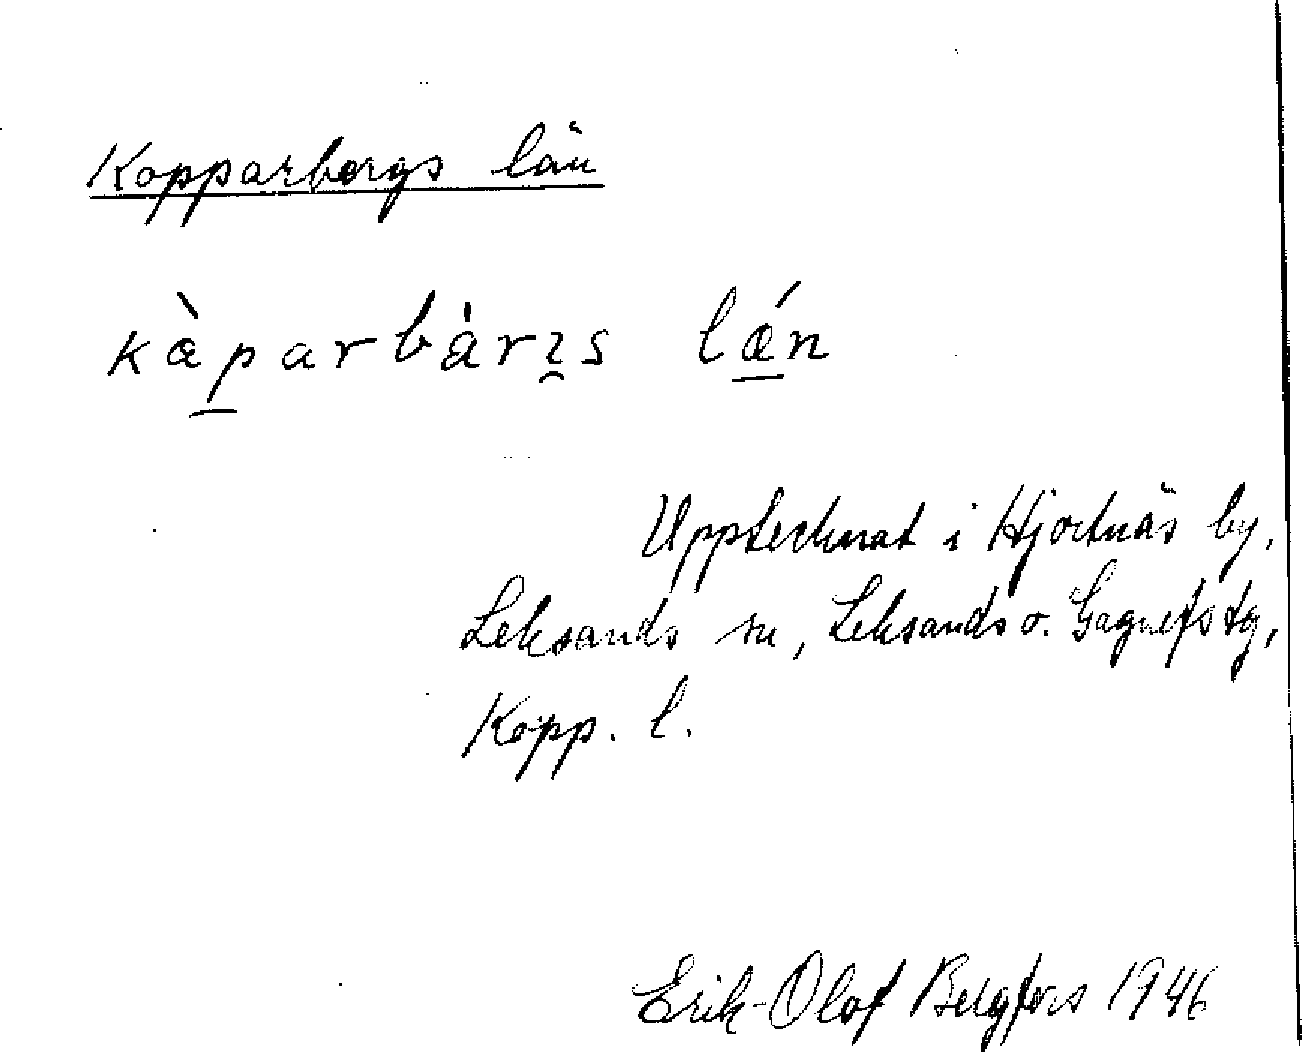 Kopparbergs län
kæ̀p̱arbàrı̯s lǽ̱n
Upptecknat i Hjortnäs by,
Leksands sn, Leksands o. Gagnefs tg,
Kopp. l.
Erik-Olof Bergfors 1946